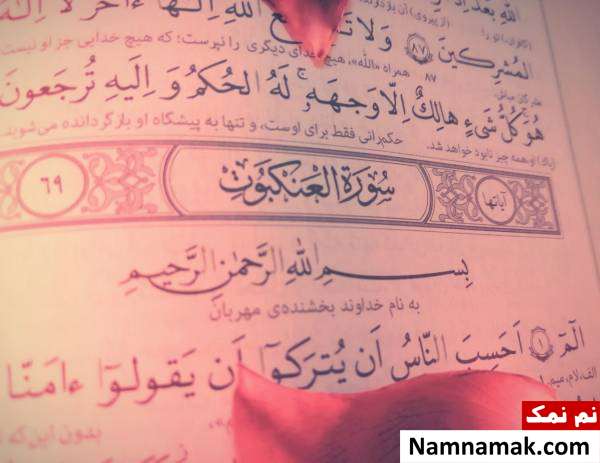 اللهِ بَعدَ
وَلا اللهِ إِلٰهًا ءاخَرَ لا إِلٰهَ
المُشرِكينَ ﴿٨٧﴾
همراه «الله»، هیچ خدای دیگری را نپرست؛ که هیچ خدایی جز او نیست
٨٧
هُوَ كُلُّ شَىءٍ هالِكٌ إِلّا وَجهَهُ لَهُ الحُكمُ وَ إِلَيهِ تُرجَعونَ
او همه چیز نابود خواهد شد. حکم‌رانی فقط برای اوست، و تنها به پیشگاه او بازگردانده می‌شوید
آیاتها
سورَةُ العَنكَبوتِ
٦٩
بِسمِ اللهِ الرَّحمٰنِ الرَّحيمِ
به نام خداوند بخشنده‌ی مهربان
الٓمٓ ﴿١﴾ أَحَسِبَ النّاسُ أَن يُترَكوا أَن يَقولوا ءامَنّا
الف، لام، میم.
بدون این‌که
نم نمک
Namnamak.com